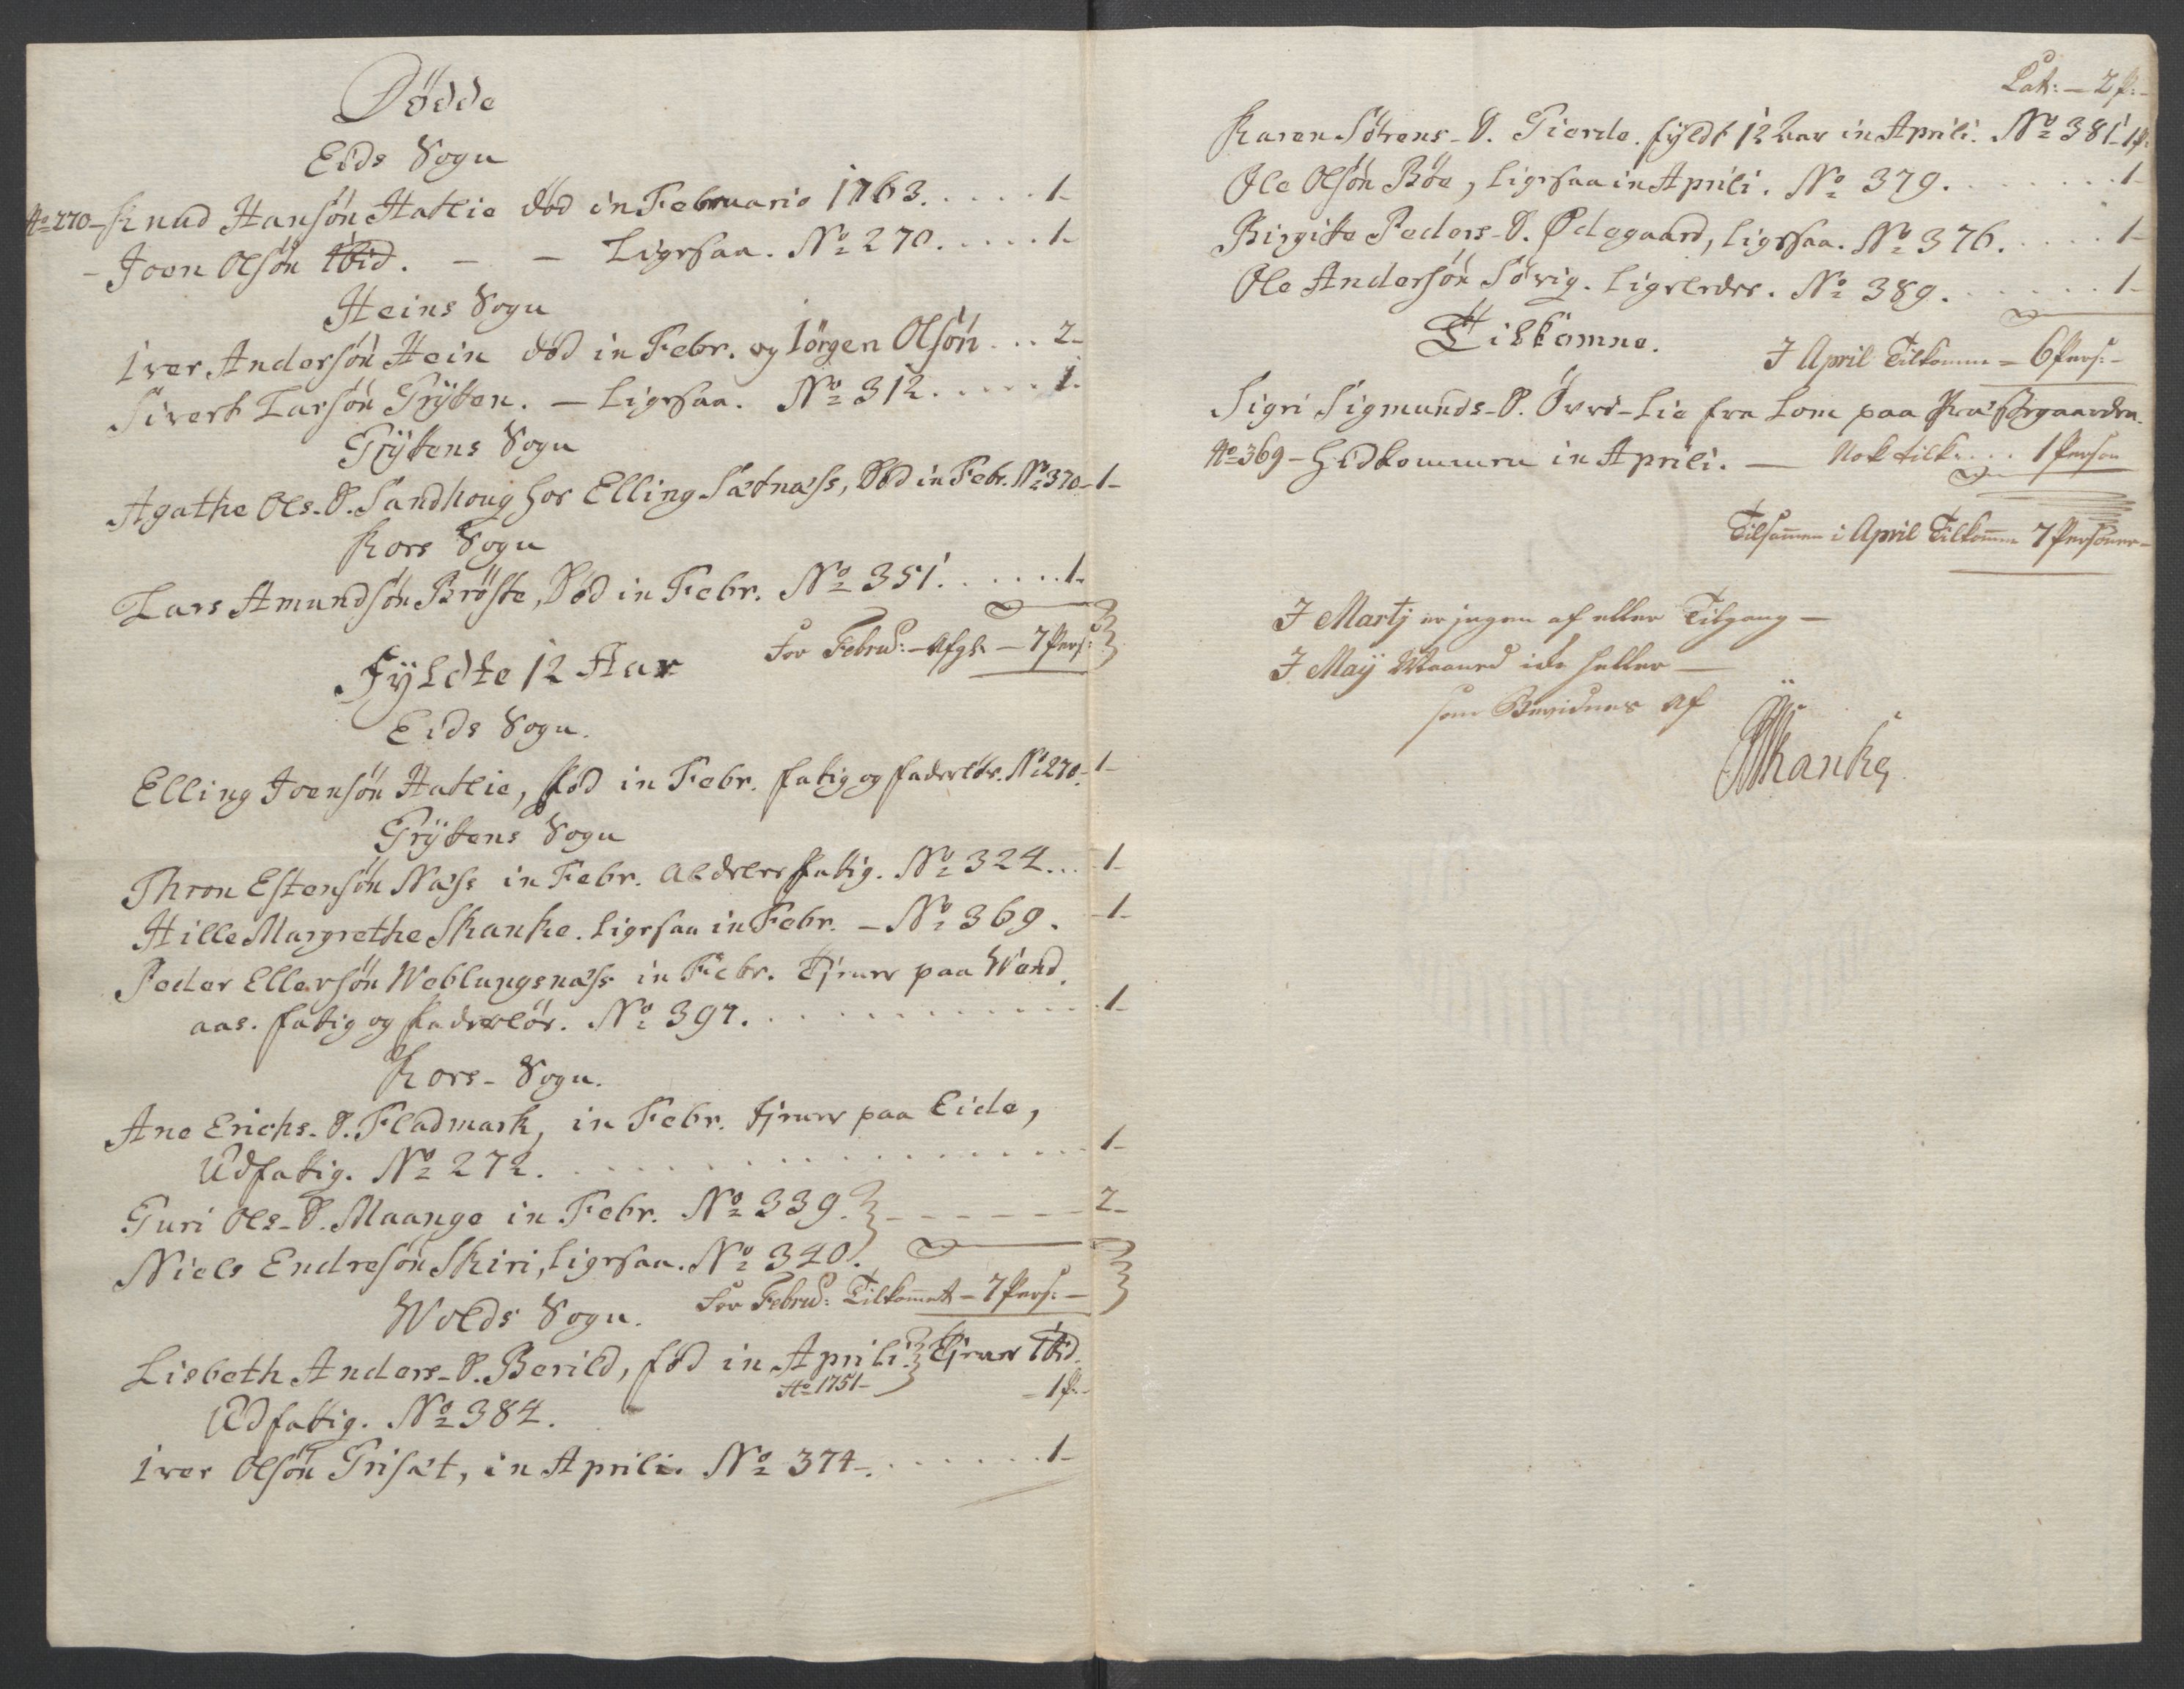 Dödde
Eids Sogn
No 270 - Knud Hansön Hatlie död in Februario 1763. . . . . . 1-
- Joen Olsön ibid. - - Ligesaa. No 270. . . . . 1-
Heins Sogn
Iver Andersön Hein död in Febr. og Jörgen Olsön . . . 2-
Sivert Larsön Gryten. - Ligesaa. No 312. . . . . 1-
Grÿtens Sogn
Agathe Ols-D. Sandhoug hos Elling Sætnæss, Död in Febr. No 370 - 1-
Kors Sogn
Lars Amundsön Bröste, Död in Febr. No 351. . . . . . 1-
For Febru: - Afg: - 7 Pers:
Fyldte 12 Aar
Eids Sogn.
Elling Joensön Hatlie, född in Febr. fatig og faderlös. No 270 - 1-
Grÿtens Sogn
Thron Estensön Næss in Febr. fatig. No 324. . . 1-
Hille Margrethe Skanke. ligesaa in Febr. - No 369. - 1-
Peder Ellersön Weblungsnæss in Febr. Tjener paa Wend
aas. fatig og faderlös. No 397. . . . . . . . . . 1-
Kors - Sogn.
Ane Erichs-D. Fladmark, in Febr. tjener paa Eide,
Udfattig. No 272. . . . . . . . . . . . . 1-
Guri Ols-D. Maange in Febr. No 339. } - - - - - 2-
Niels Endresön Skiri, ligesaa. No 340.
For Febru: Tilkommet - 7 Pers: -
Wolds Sogn.
Lisbeth Anders-D. Berild, född in Aprili } Tjener ibid.
Ao 1751 - - 1 P: -
Udfattig. No 384.
Iver Olsön Grisæt, in Aprili. No 374 - . . . . . . 1-
Lat: - 2 P: -
Karen Sörens-D. Gierde. fyldt 12 Aar in Aprili. No 381 - 1 P:
Ole Olsön Böe, ligesaa in Aprili. No 379. . . . . . . 1-
Birgitte Peders-D. Ødegaard, ligesaa. No 376. . . . . 1-
Ole Andersön Sövig. ligeledes. No 389. . . . . . . 1-
Tilkomne.
I April Tilkomne = 6 Pers: -
Sigri Sigmunds-D. Övre-Lie fra Lom paa Præstegaarden
No 369 - hidkommen in Aprili. - Nok tilk. . . . 1 Person
Tilsammen i April Tilkomne 7 Personer -
I Martj er ingen af eller Tilgang -
I Maÿ Maaned icke heller -
som Bevidnes af
Skanke